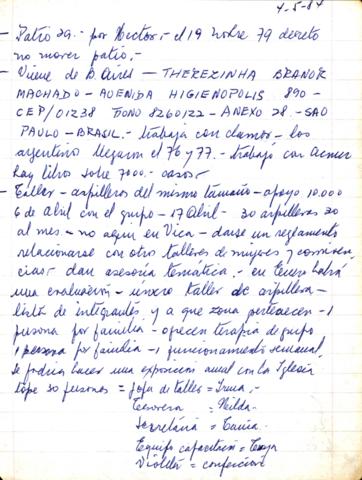 4-5-84
- Patio 29.- por Hector.- el 19 sobre 79 decreto
no mover patio.-
- Viene de B Aires - THEREZINHA BRANDE
MACHADO - AVENIDA HIGIENOPOLIS 890 -
CEP/01238 FONO 8260122 - ANEXO 28.- SAO
PAULO - BRASIL.- trabaja con clamor - los
argentino llegaron el 76 y 77.- trabajó con Acnur
hay libro sobre 7000.- casos.-
- Taller - arpilleras del mismo tamaño - apoyo 10.000
6 de Abril con el grupo - 17 Abril - 30 arpilleras 30
al mes.- no aquí en Vica - darse un reglamento
relacionarse con otro talleres de mujeres y
dan asesoria tematica.- en Enero habrá
una evaluación - taller de arpillera -
lista de integrantes y a que zona pertenecen - 1
persona por familia - ofrecen terapia de grupo
1 persona por familia - 1 funcionamiento semanal,
se podria hacer una exposición anual con la Iglesia
tope 30 personas = Jefa de taller = Irma.-
Tesorera = Hilda.-
Secretária = Tania.
Equipo capacitación =
Violeta = confección